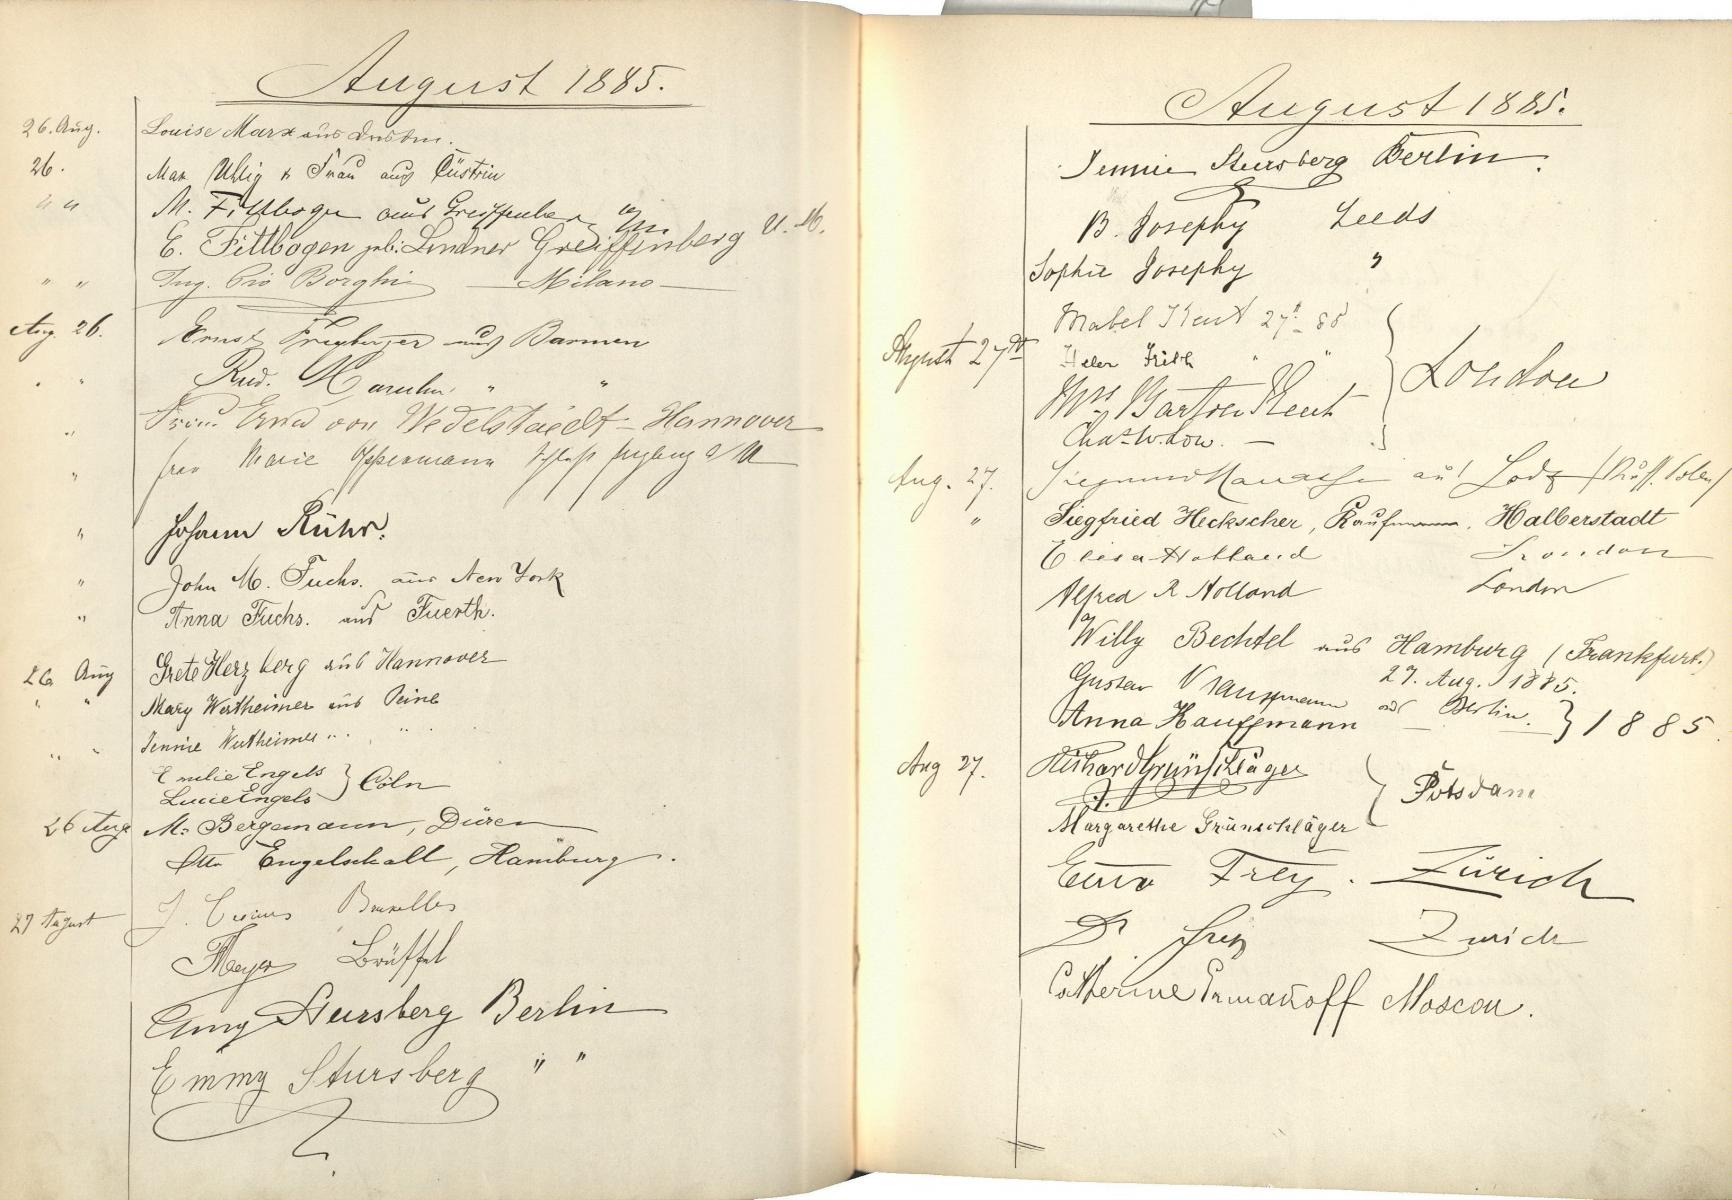 August 1885.
26. Aug. Louise Marx aus Dresden.
26. Max Uhlig & Frau aus Cüstrin
" " M. Fittbogen aus Greiffenberg U. M.
E. Fittbogen geb. Lindner Greiffenberg
" " Ing. Pio Borghi — Milano —
Aug. 26. Ernst Freyberger aus Barmen
" " Rud. " "
" Frau Erna von Wedelstaedt - Hannover
" Frau Marie Oppermann
" Johann Rühr.
" John M. Fuchs. aus New York
" Anna Fuchs. aus Fuerth.
26 Aug Grete Herzberg aus Hannover
" " Mary Wertheimer aus Peine
" " Jennie Wertheimer " "
Emilie Engels
Lucie Engels } Cöln
26 Aug M. Bergemann, Düren
Otto Engelschall, Hamburg.
27 August J. Bruxelles
Meyer Brüssel
Amy Stursberg Berlin
Emmy Stursberg " "
August 1885.
Jennie Stursberg Berlin.
B. Josephy Leeds
Sophie Josephy "
Mabel Kent 27th 85
August 27th Helen Frith " "
Mrs Barton Kent London
Chas. W. Low. —
Aug. 27. Siegmund Manasse aus Lodz (Russ. Polen)
" Siegfried Heckscher, Kaufmann, Halberstadt
Elisa Holland London
Alfred R Holland London
Willy Bechtel aus Hamburg (Frankfurt.)
27. Aug. 1885.
Gustav Kauffmann aus Berlin.
Anna Kauffmann } 1885
Aug 27. Richard Grünschläger
Potsdam
Margarethe Grünschläger
Emma Frey. Zürich
Dr. Frey Zurich
Catherine Ermakoff Moscou.